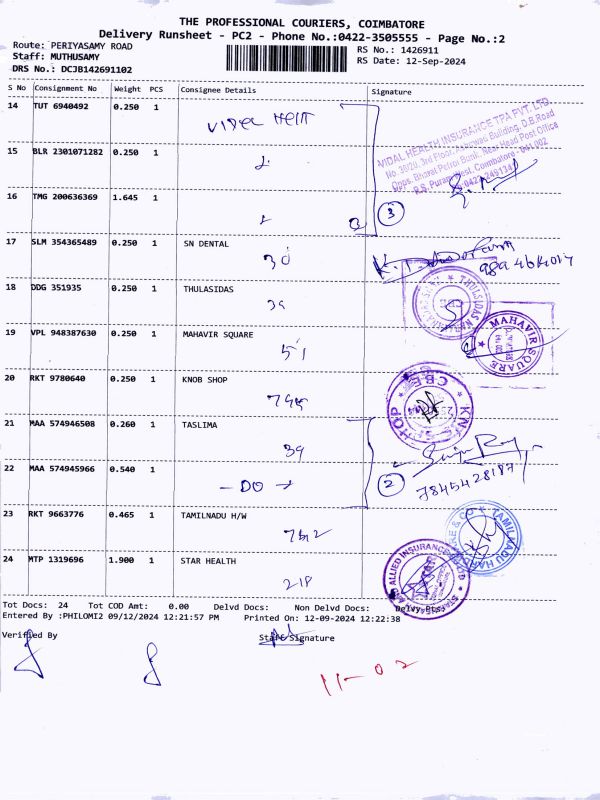 THE PROFESSIONAL COURIERS, COIMBATORE
Delivery Runsheet - PC2 - Phone No.:0422-3505555 - Page No.:2
Route: PERIYASAMY ROAD
RS No.: 1426911
Staff: MUTHUSAMY
RS Date: 12-Sep-2024
DRS No.: DCJB142691102
S No Consignment No Weight PCS Consignee Details Signature
14 TUT 6940492 0.250 1
VIDAL HEALTH INSURANCE TPA PVT. LTD.
15 BLR 2301071282 0.250 1
16 TMG 200636369 1.645 1
3
17 SLM 354365489 0.250 1 SN DENTAL
30
18 DDG 351935 0.250 1 THULASIDAS
39
19 VPL 948387630 0.250 1 MAHAVIR SQUARE
51
MAHAVIR SQUARE
20 RKT 9780640 0.250 1 KNOB SHOP
21 MAA 574946508 0.260 1 TASLIMA
39
22 MAA 574945966 0.540 1
- DO -
2
7845428187
23 RKT 9663776 0.465 1 TAMILNADU H/W
24 MTP 1319696 1.900 1 STAR HEALTH
218
Tot Docs: 24 Tot COD Amt: 0.00 Delvd Docs: Non Delvd Docs: Delvy Pts:
Entered By :PHILOMI2 09/12/2024 12:21:57 PM Printed On: 12-09-2024 12:22:38
Verified By Staff Signature
11-02